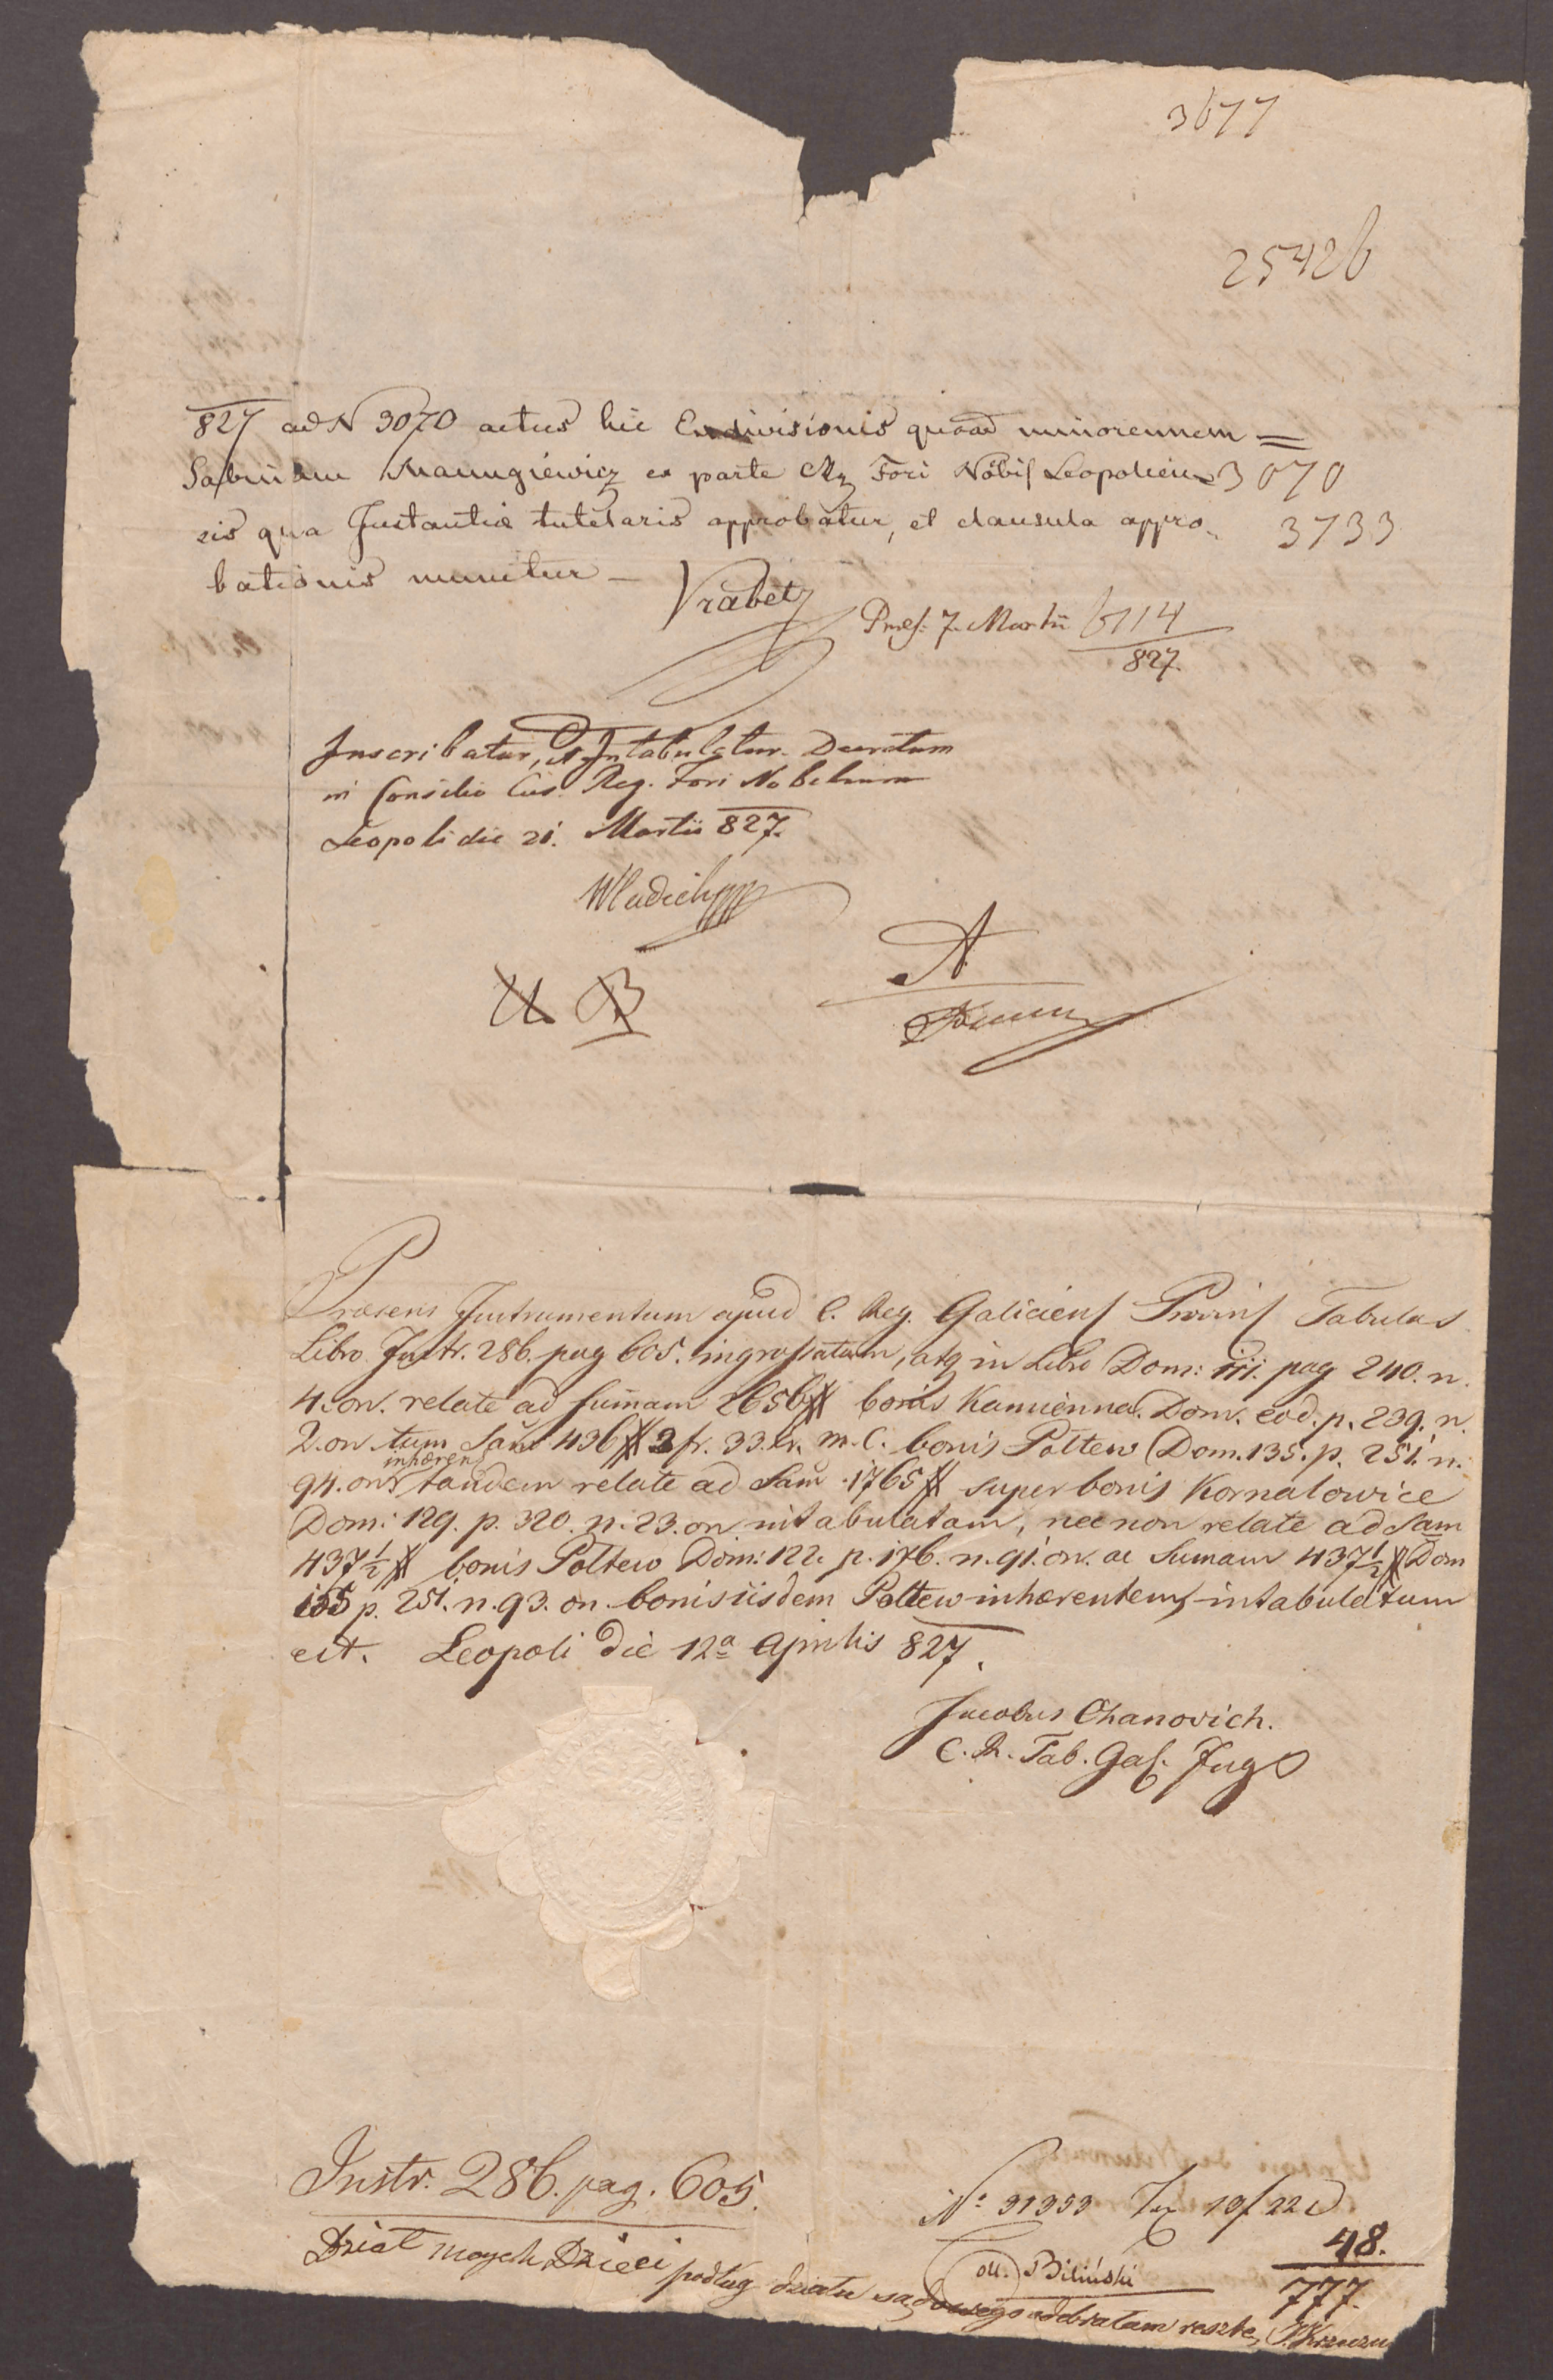 3677
25426
827 ad N 3070 actus hic Exdivisionis quoad minorennem =
Sabinam Manugiewicz ex parte Fori Nobil Leopolien 3070
sis qua Instantiæ tutelaris approbatur, et clausula appro- 3733
bationis munitur —
Vrabetz
Præs: 7. Martii 6114
827.
Inscribatur, et Intabuletur. Decretum
in Consilio Cæs. Reg. Fori Nobilium
Leopoli die 21. Martii 827.
A
B
Præsens Instrumentum apud C. Reg. Galiciens Provins Tabulas
Libro Instr. 286. pag 605. ingrossatum, atq in Libro Dom: 111. pag 240. n.
4. on. relate ad sumam 2656 # bonis Kamienna Dom. eod. p. 239. n.
2. on tum Sam 436 # 3 fr. 33. kr. M. C. bonis Poltew Dom. 135. p. 251. n.
inhærens
94. on. tandem relate ad Sam 1765 # super bonis Kornalowice
Dom: 129. p. 320. n. 23. on. intabulatam, nec non relate ad Sam
437 1/2 # bonis Poltew Dom: 122. p. 176. n. 91. on. ac Sumam 437 1/2 # Dom
135 p. 251. n. 93. on bonis iisdem Poltew inhærentem, intabulatum
est. Leopoli die 12a Aprilis 827.
Jacobus Chanovich.
C. R. Tab. Gal. Ingr
Instr. 286. pag. 605.
No 31353 Tax 19f 22
48.
Biliński
777.
Dział moych Dzieci podług działu sądowego odebrałam resztę,